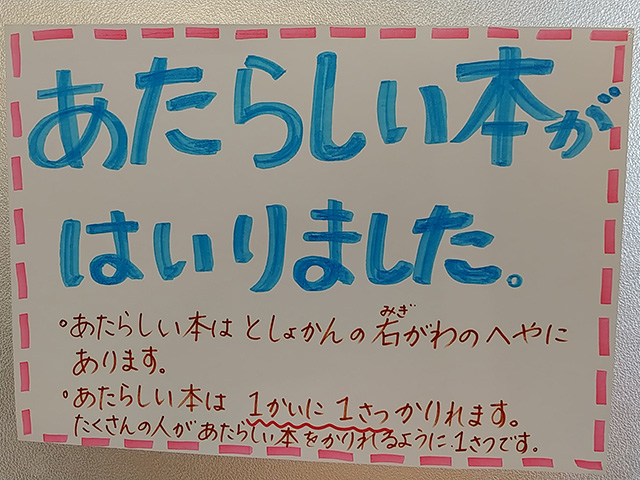 あたらしい本が
はいりました。
•あたらしい本は としょかんの 右がわのへやに
みぎ
あります。
•あたらしい本は 1かいに 1さつ かりれます。
たくさんの人が あたらしい本を かりれるように 1さつです。